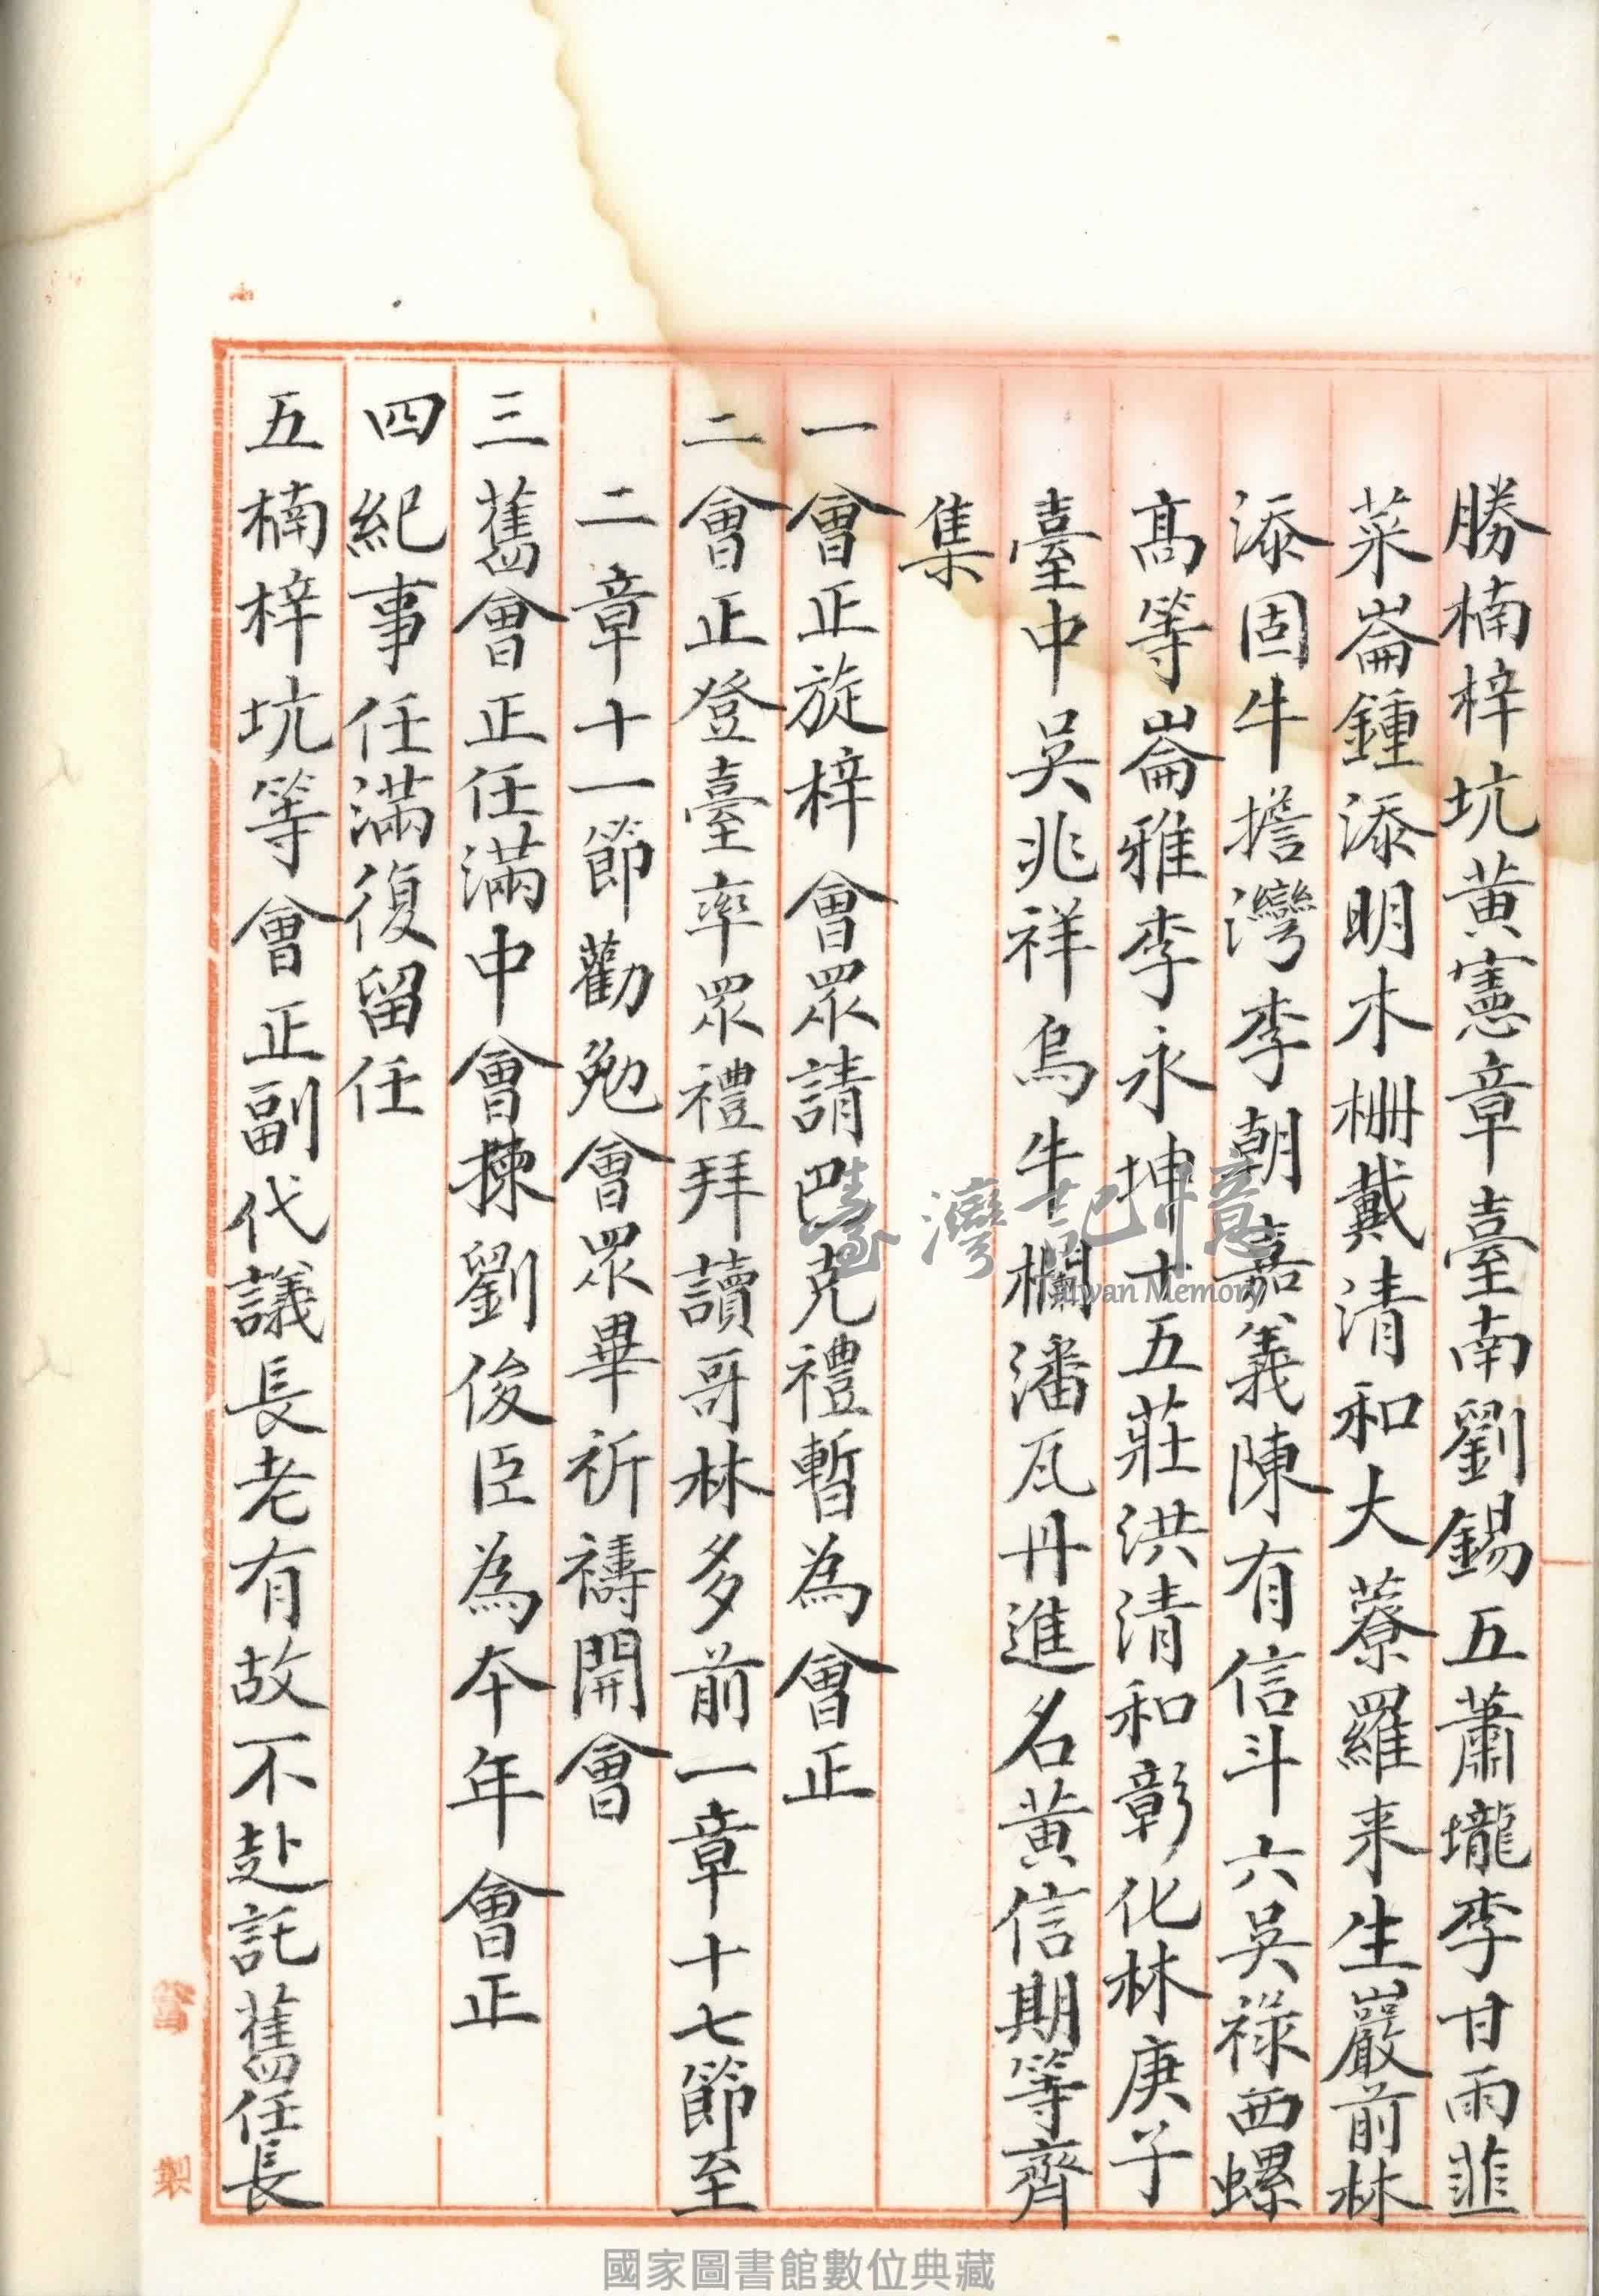 勝楠梓坑黃憲章臺南劉錫五蕭壠李甘雨韮
菜崙鍾添明木柵戴清和大藔羅来生巖前林
添固牛擔灣李朝嘉義陳有信斗六吳祿西螺
髙等崙雅李永坤十五莊洪清和彰化林庚子
臺中吳兆祥烏牛欄潘瓦丹進名黃信期等齊
集
一會正旋梓會眾請巴克禮暫為會正
二會正登臺率眾禮拜讀哥林多前一章十七節至
二章十一節勸勉會眾畢祈禱開會
三舊會正任滿中會揀劉俊臣為本年會正
四紀事任滿復留任
五楠梓坑等會正副代議長老有故不赴託舊任長
製
臺灣記憶
Taiwan Memory
國家圖書館數位典藏